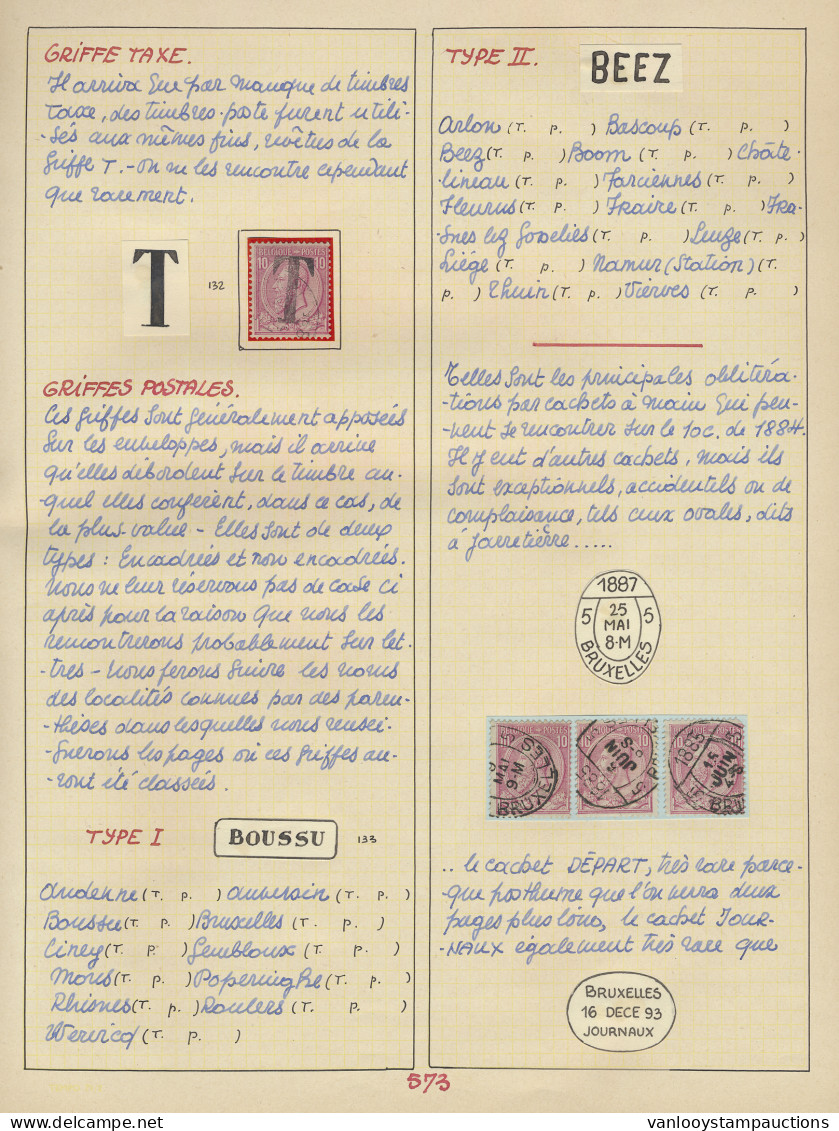 GRIFFE TAXE.
Il arriva que par manque de timbres
taxe, des timbres-poste furent utili-
-sés aux mêmes fins, revêtus de la
griffe T. - On ne les rencontre cependant
que rarement.
T
132
BELGIQUE POSTES
10 10
T
GRIFFES POSTALES.
Ces griffes sont généralement apposées
sur les enveloppes, mais il arrive
qu'elles débordent sur le timbre au-
-quel elles confèrent, dans ce cas, de
la plus-value - Elles sont de deux
types : Encadrées et non encadrées.
Nous ne leur réservons pas de case ci
après pour la raison que nous les
rencontrerons probablement sur let-
-tres - Nous ferons suivre les noms
des localités connues par des paren-
-thèses dans lesquelles nous rensei-
-gnerons les pages où ces griffes au-
-ront été classées.
TYPE I
BOUSSU
133
Andenne (T. p. ) Auvelais (T. p. )
Boussu (T. p. ) Bruxelles (T. p. )
Ciney (T. p. ) Gembloux (T. p. )
Mons (T. p. ) Poperinghe (T. p. )
Rhisnes (T. p. ) Roulers (T. p. )
Wervicq (T. p. )
TYPE II.
BEEZ
Arlon (T. p. ) Bascoup (T. p. )
Beez (T. p. ) Boom (T. p. ) Châte-
-lineau (T. p. ) Farciennes (T. p. )
Fleurus (T. p. ) Fraire (T. p. ) Fra-
-snes lez Gosselies (T. p. ) Leuze (T. p. )
Liége (T. p. ) Namur (Station) (T.
p. ) Thuin (T. p. ) Vierves (T. p. )
Telles sont les principales oblitéra-
-tions par cachets à main qui peu-
-vent se rencontrer sur le 10c. de 1884.
Il y eut d'autres cachets, mais ils
sont exceptionnels, accidentels ou de
complaisance, tels ceux ovales, dits
à jarretierre.....
1887
5 25 5
MAI
8-M
BRUXELLES
.. le cachet DÉPART, très rare parce-
-que posthume que l'on verra deux
pages plus loin, le cachet JOUR-
-NAUX également très rare que
BRUXELLES
16 DECE 93
JOURNAUX
573
DELCAMPE
vanlooystampauctions